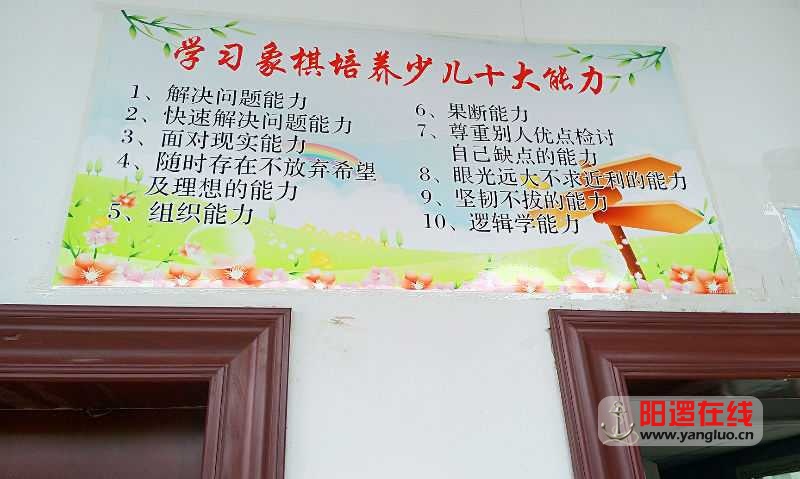 学习象棋培养少儿十大能力
1、解决问题能力
2、快速解决问题能力
3、面对现实能力
4、随时存在不放弃希望
及理想的能力
5、组织能力
6、果断能力
7、尊重别人优点检讨
自己缺点的能力
8、眼光远大不求近利的能力
9、坚韧不拔的能力
10、逻辑学能力
阳逻在线
www.yangluo.cn